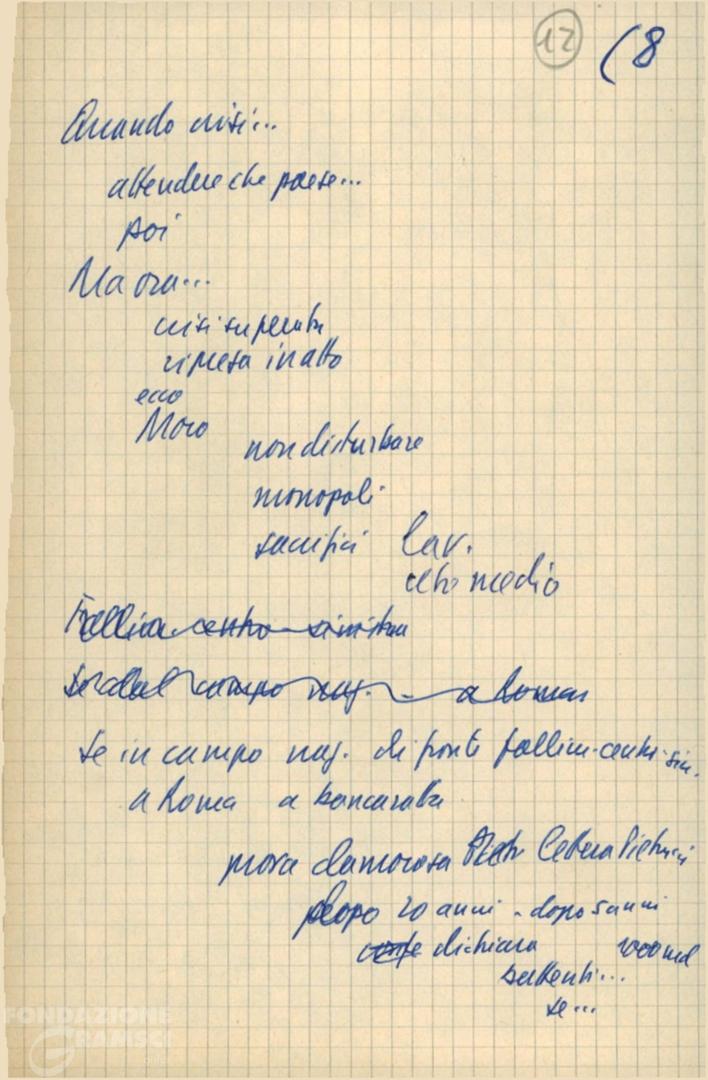 12 (8
Quando crisi...
attendere che paese...
poi
Ma ora...
crisi superata
ripresa in atto
ecco
Moro
non disturbare
monopoli
sacrifici lav.
ceto medio
Fallim centro-sinistra
Se dal campo naz. a Roma
se in campo naz. di fronte fallim. centro-sin.
a Roma a bancarotta
prova clamorosa Lettera Petrucci
dopo 20 anni - dopo 5 anni
dichiara 1000 md
battenti...
se...
FONDAZIONE
GRAMSCI